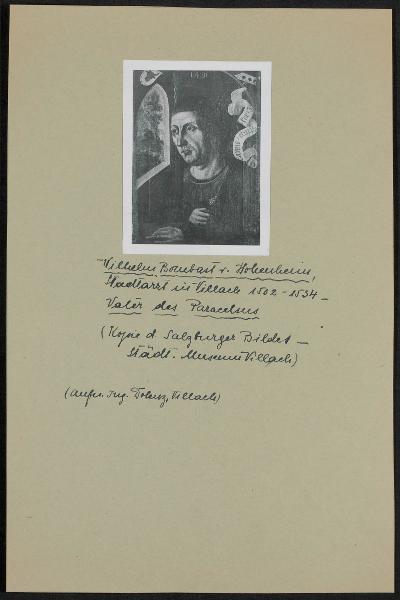 1491
Wilhelm Bombast v. Hohenheim,
Stadtarzt in Villach 1502-1534 –
Vater des Paracelsus
(Kopie d. Salzburger Bildes –
Städt. Museum Villach)
(Aufn. Ing. Villach)